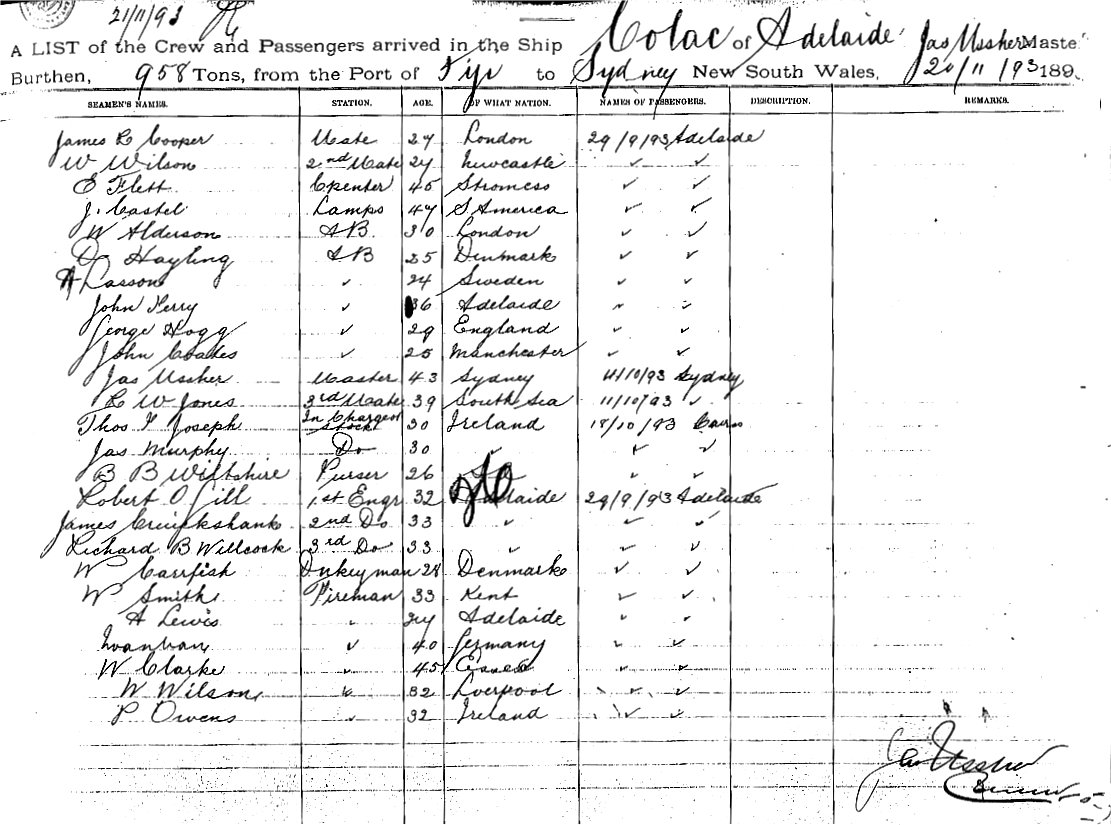 21/11/93
A LIST of the Crew and Passengers arrived in the Ship Colac of Adelaide Jas Ussher Master
Burthen, 958 Tons, from the Port of Fiji to Sydney New South Wales, 20/11/93 189
SEAMEN'S NAMES. STATION. AGE. OF WHAT NATION. NAMES OF PASSENGERS. DESCRIPTION. REMARKS.
James R Cooper Mate 27 London 29/9/93 Adelaide
W Wilson 2nd Mate 27 Newcastle ✓ ✓
E Flett Cpenter 45 Stromess ✓ ✓
J. Castel Lamps 47 S America ✓ ✓
W Alderson AB 30 London ✓ ✓
D Hayling AB 25 Denmark ✓ ✓
A Lasson ✓ 24 Sweden ✓ ✓
John Kerry ✓ 36 Adelaide ✓ ✓
George Hogg ✓ 29 England ✓ ✓
John Coates ✓ 25 Manchester ✓ ✓
Jas Ussher Master 43 Sydney 4/10/93 Sydney
R W Jones 3rd Mate 39 South Sea 11/10/93 ✓
Thos F Joseph In Charge of Stock 30 Ireland 18/10/93 Cairns
Jas Murphy Do 30 ✓ ✓ ✓
B B Wiltshire Purser 26 ✓ ✓
Robert O Gill 1st Engr 32 Adelaide 29/9/93 Adelaide
James Cruickshank 2nd Do 33 ✓ ✓ ✓
Richard B Willcock 3rd Do 33 ✓ ✓ ✓
W Carrfish Dnkeyman 28 Denmark ✓ ✓
W Smith Fireman 33 Kent ✓ ✓
A Lewis ✓ 24 Adelaide ✓ ✓
✓ 40 Germany ✓ ✓
W Clarke ✓ 45 Essex ✓ ✓
W Wilson ✓ 32 Liverpool ✓ ✓
P Owens ✓ 32 Ireland ✓ ✓
Jas Ussher